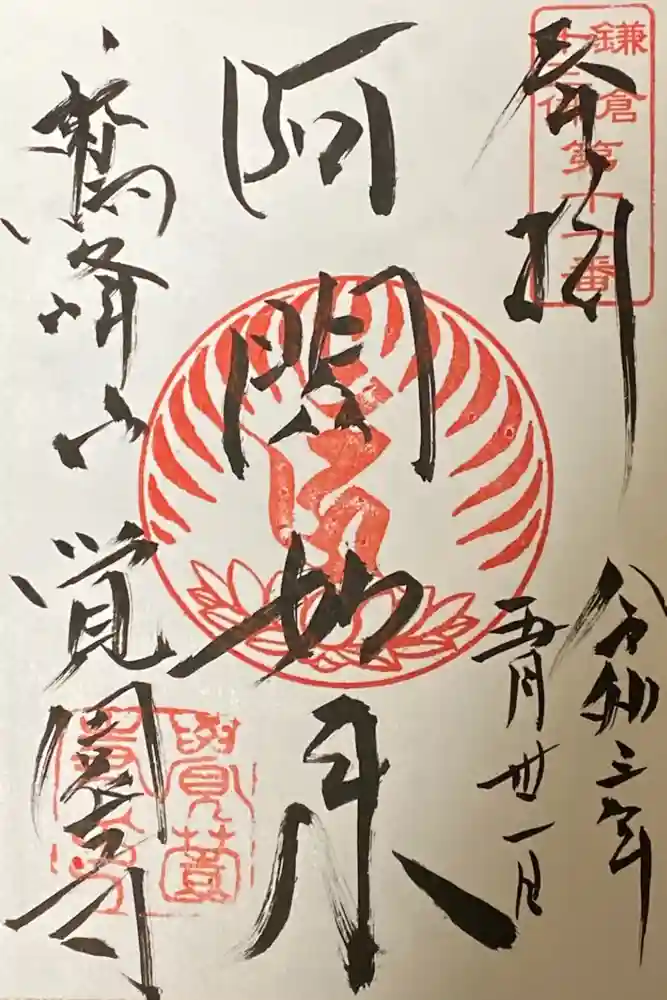 鎌倉
十三佛
第十一番
奉拝
令和三年
五月卅一日
阿閦如来
鷲峰山覚園寺